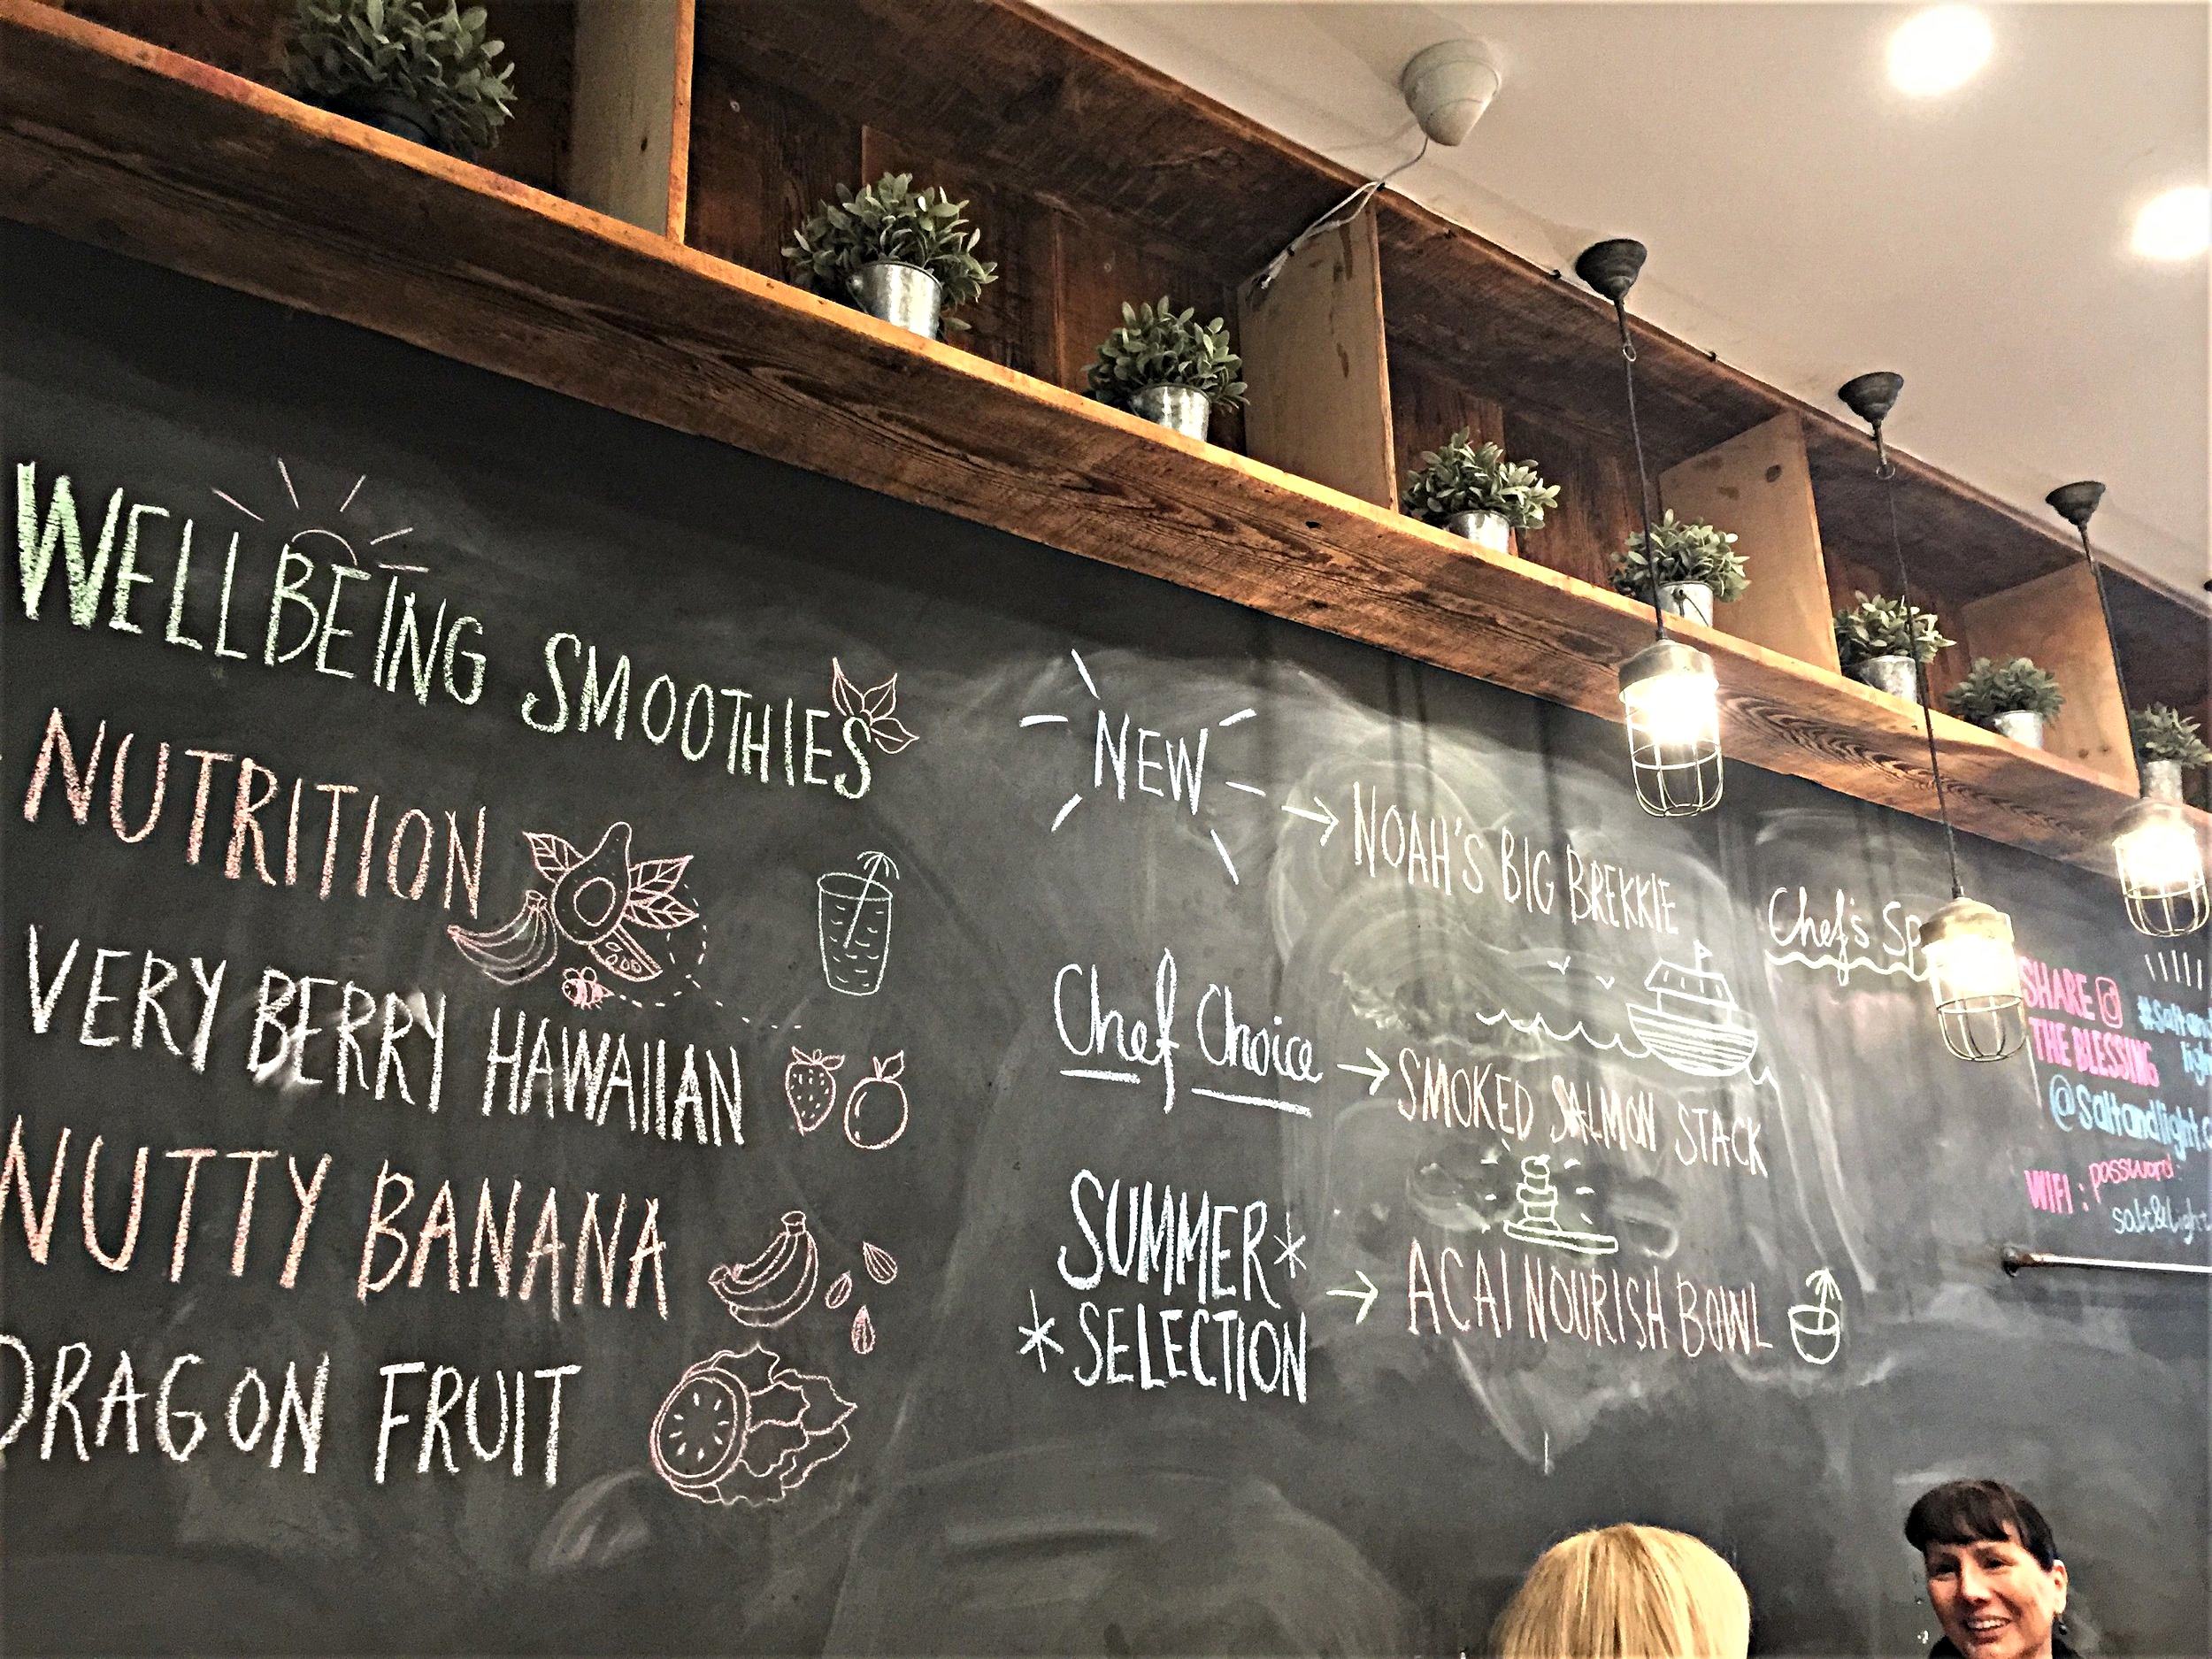 WELLBEING SMOOTHIES
NUTRITION
VERY BERRY HAWAIIAN
NUTTY BANANA
DRAGON FRUIT
NEW
NOAH'S BIG BREKKIE
Chef Choice
SMOKED SALMON STACK
SUMMER
SELECTION
ACAI NOURISH BOWL
Chef's
SHARE
THE BLESSING
WIFI: password
salt&light